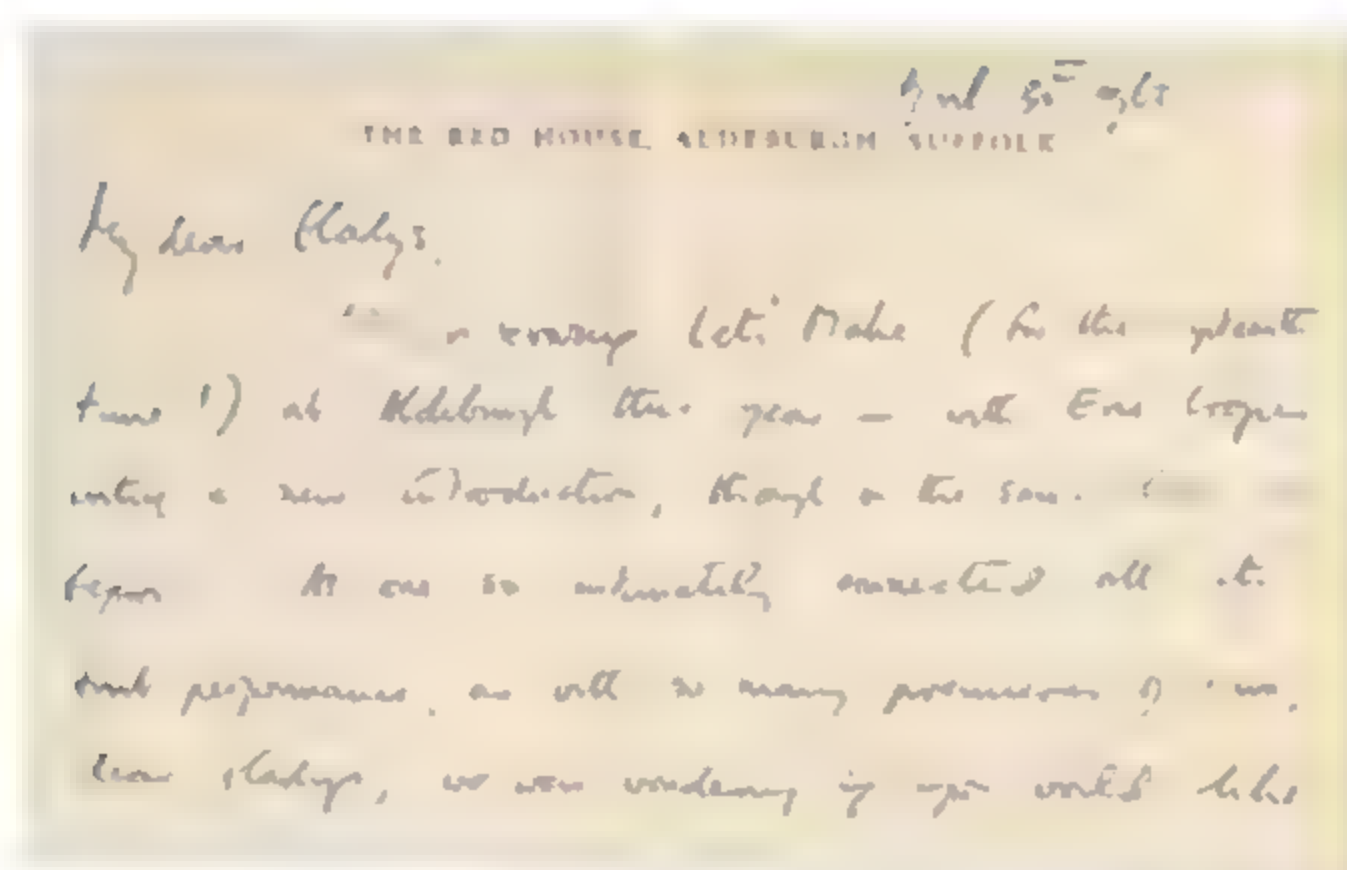 THE RED HOUSE, ALDEBURGH SUFFOLK
My dear Gladys,
reviving Let's Make (for the
time!) at Aldeburgh this year — with Eric Crozier
writing a new introduction, though on the same
began As one so intimately connected with its
first performance, as with so many premieres of
dear Gladys, we were wondering if you would like